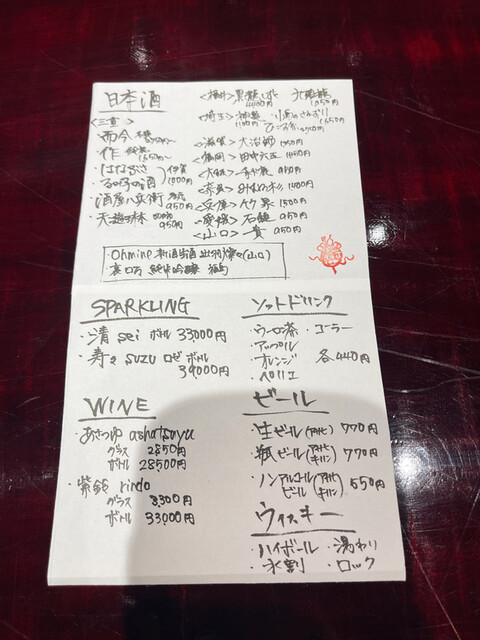 日本酒
<三重>
・而今
・作
・はなぶさ 伊賀
・るみ子の酒 1000円
・酒屋八兵衛 950円
・天遊琳 950円
<福井> 黒龍しずく 4400円 九頭龍 1050円
<埼玉> 神亀 1100円 小鳥のさえずり 1650円
ひこ孫
<滋賀> 大治郎
<福岡> 田中六五
<大阪>
<奈良> みむろ杉 1400円
<兵庫> 竹泉 1500円
<愛媛> 石鎚 950円
<山口> 貴 950円
・Ohmine (山口)
・裏ロ万 純米吟醸 福島
SPARKLING
・清 sei ボトル 33,000円
・寿々 suzu ロゼ ボトル
39,000円
WINE
・あさつゆ asatsuyu
グラス 2850円
ボトル 28500円
・紫鈴 rindo
グラス 3,300円
ボトル 33,000円
ソフトドリンク
・ウーロン茶 ・コーラー
・アップル
・オレンジ 各440円
・ペリエ
ビール
・生ビール(アサヒ) 770円
・瓶ビール(アサヒ キリン) 770円
・ノンアルコールビール(アサヒ キリン) 550円
ウィスキー
・ハイボール ・湯わり
・水割 ・ロック